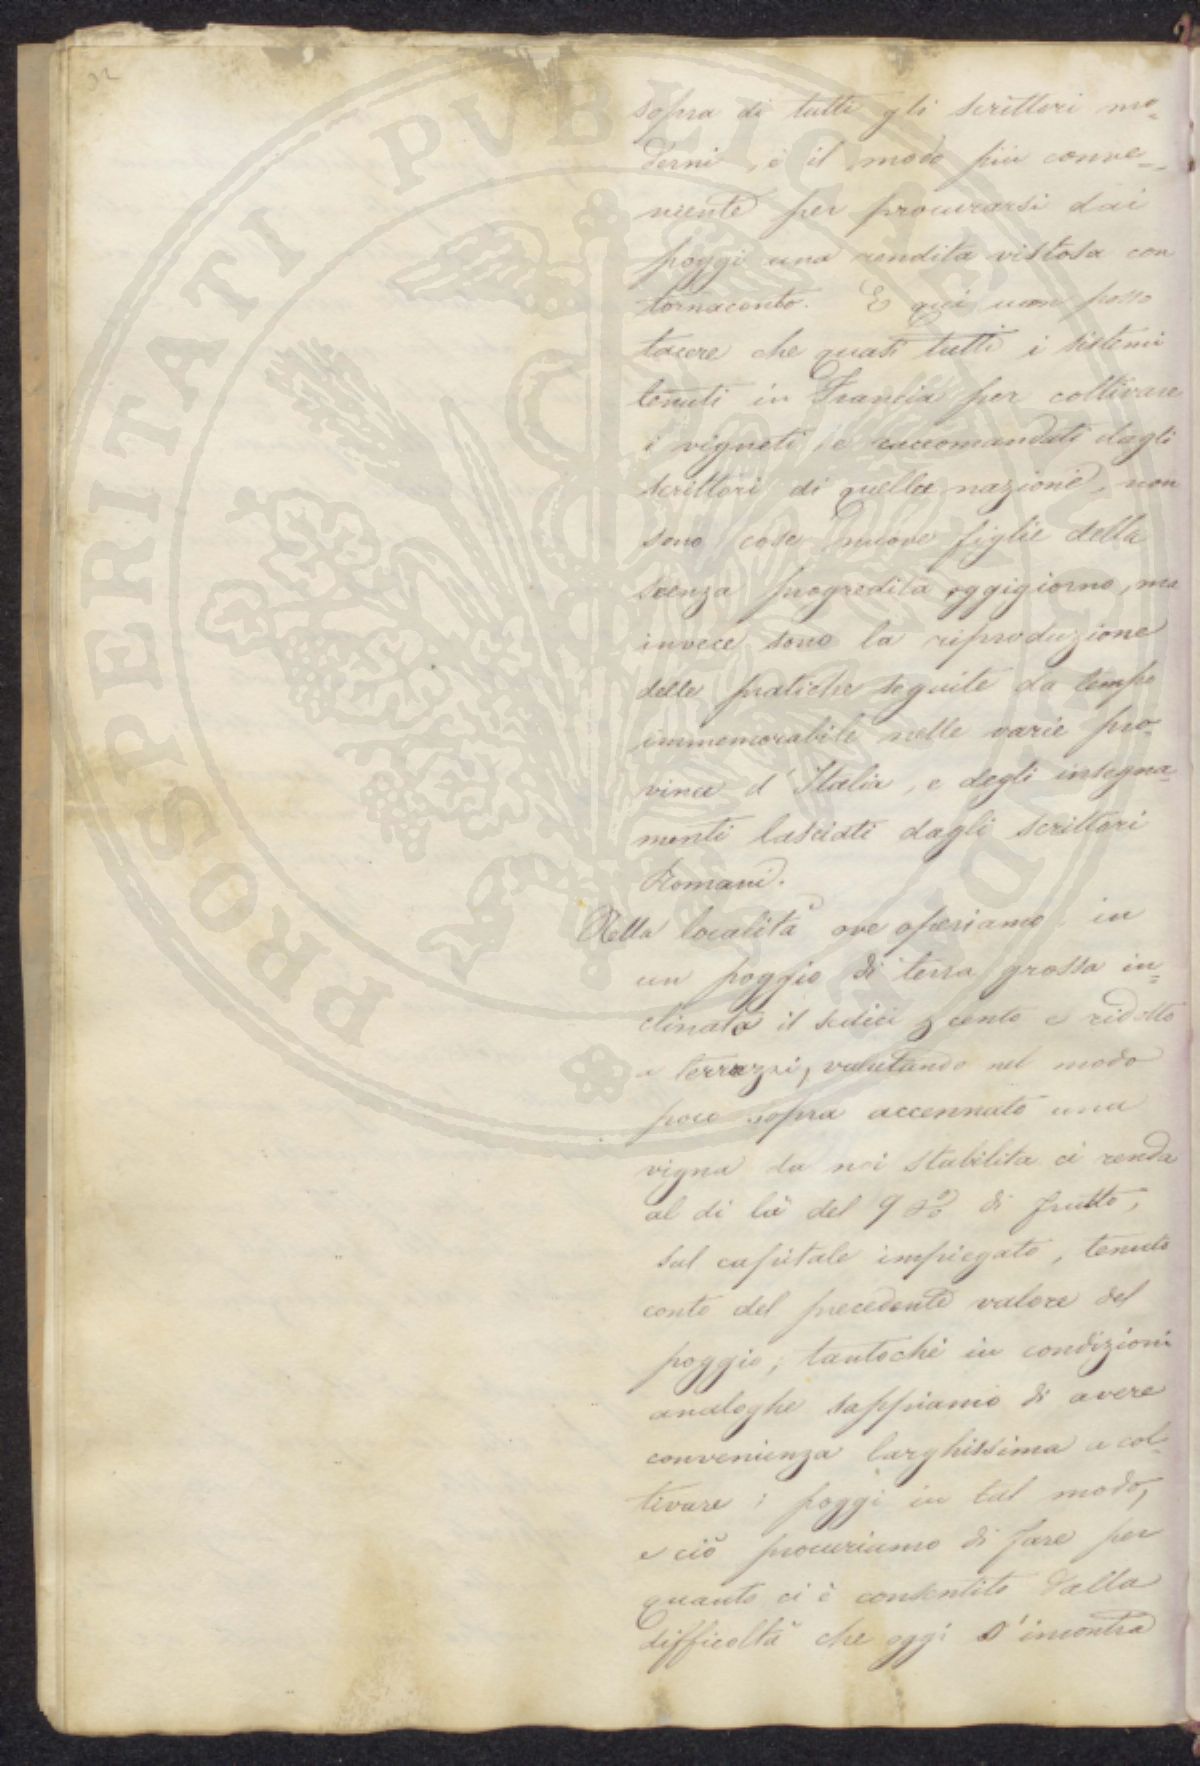 32
PROSPERITATI PVBLICAE AVGENDAE
sopra di tutti gli scrittori mo=
derni, è il modo più conve=
niente per procurarsi dai
poggi una rendita vistosa con
tornaconto. E qui non posso
tacere che quasi tutti i sistemi
tenuti in Francia per coltivare
i vigneti, e raccomandati dagli
scrittori di quella nazione, non
sono cose nuove figlie della
scenza progredita oggigiorno, ma
invece sono la riproduzione
delle pratiche seguite da tempo
immemorabile nelle varie pro=
vince d'Italia, e degli insegna=
menti lasciati dagli scrittori
Romani.
Nella località ove operiamo, in
un poggio di terra grossa in=
clinata il sedici % cento e ridotto
a terrazzi, valutando nel modo
poco sopra accennato una
vigna da noi stabilita ci renda
al di là del 9 % di frutto,
sul capitale impiegato, tenuto
conto del precedente valore del
poggio; tantochè in condizioni
analoghe sappiamo di avere
convenienza larghissima a col=
tivare i poggi in tal modo,
e ciò procuriamo di fare per
quanto ci è consentito dalla
difficoltà che oggi s'incontra